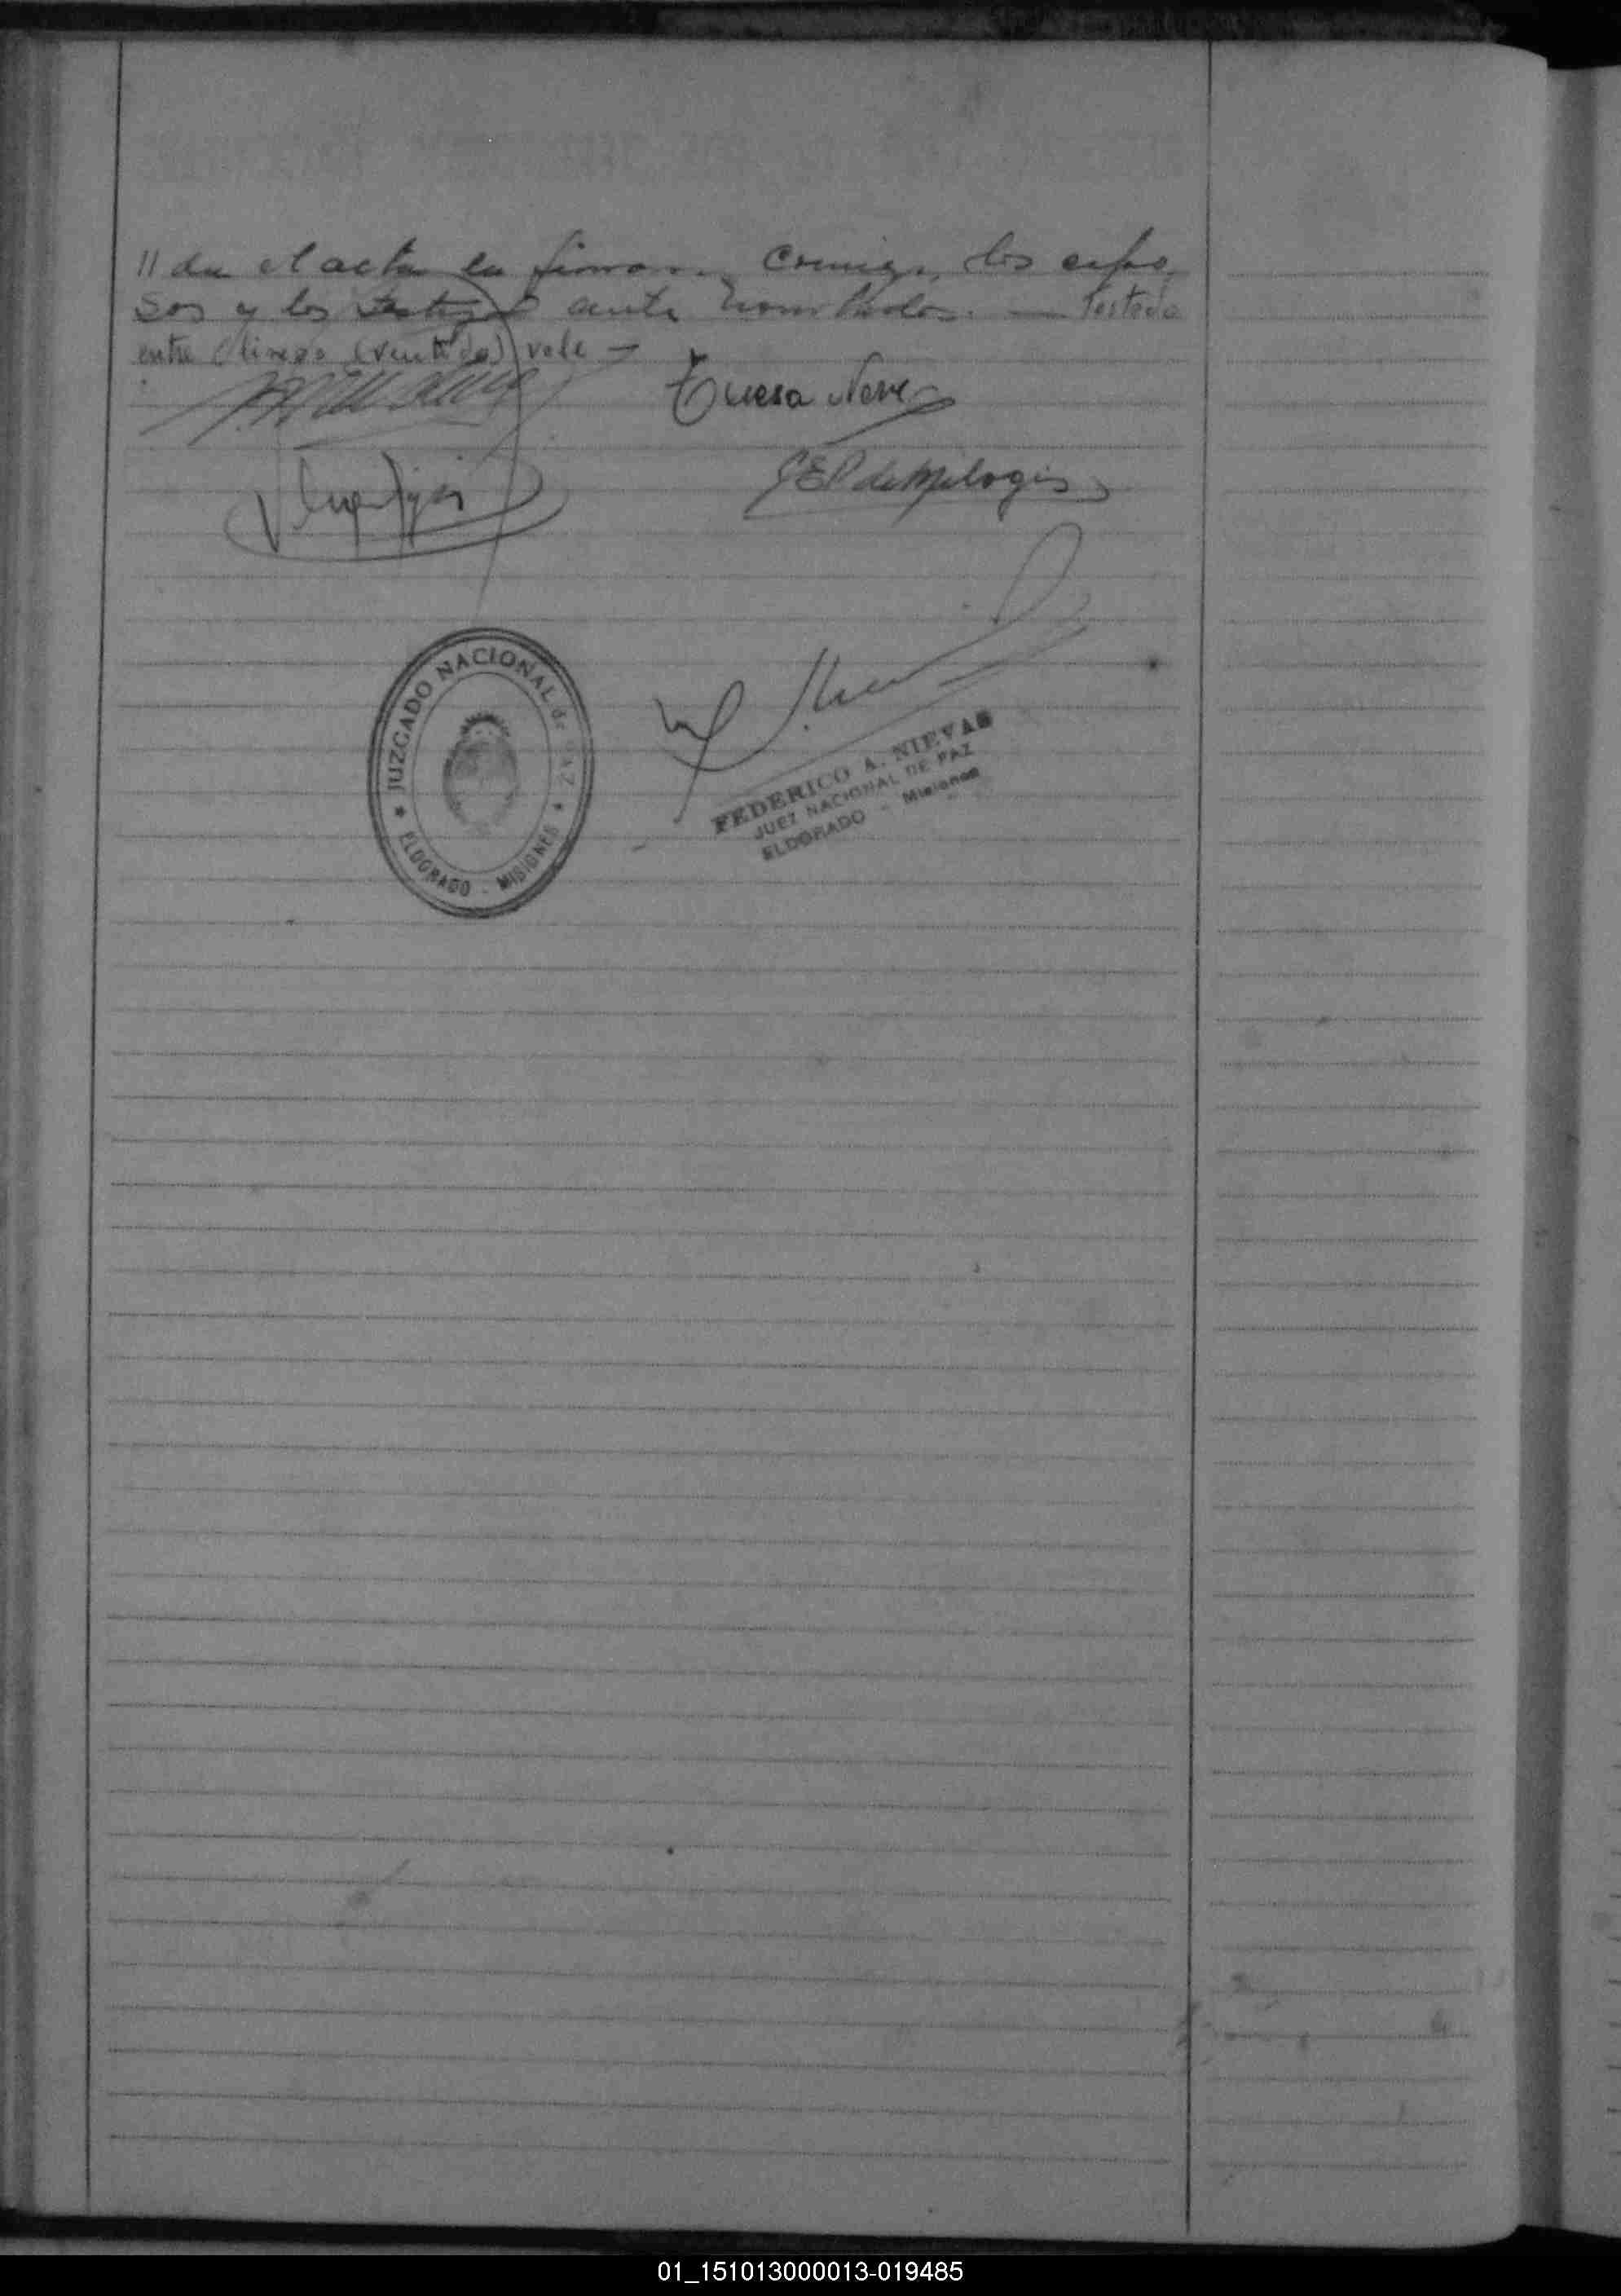 // da el acta la firman conmigo, los espo
sos y los testigos antes nombrados. — Testado
entre lineas (veintidos) vale —
Teresa Neve
G E P de Milogis
JUZGADO NACIONAL de PAZ
ELDORADO - MISIONES
FEDERICO A. NIEVAS
JUEZ NACIONAL DE PAZ
ELDORADO - Misiones
01_151013000013-019485